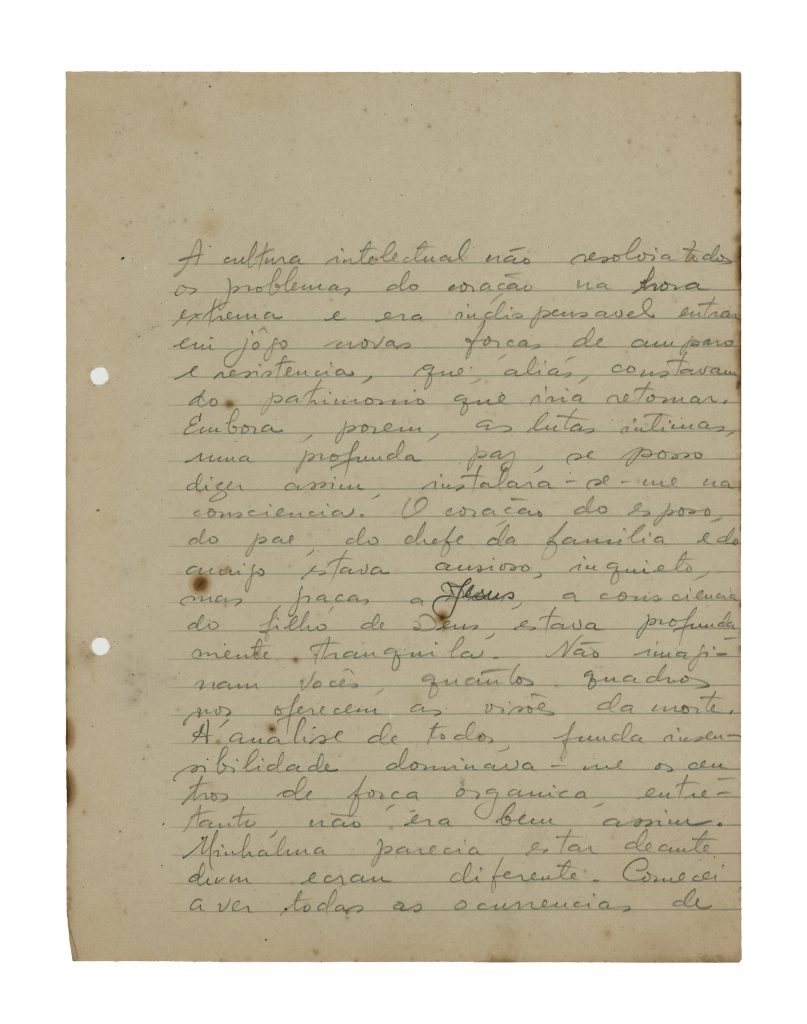 A cultura intelectual não resolvia todos
os problemas do coração na hora
extrema e era indispensavel entrar
em jôgo novas forças de amparo
e resistencia, que, aliás, constavam
do patrimonio que iria retomar.
Embora, porem, as lutas intimas,
uma profunda paz, se posso
dizer assim, instalára-se-me na
consciencia. O coração do esposo,
do pae, do chefe da familia e do
amigo estava ansioso, inquieto,
mas graças a Jesus, a consciencia
do filho de Deus, estava profunda
mente tranquila. Não imagi-
nam vocês, quantos quadros
nos oferecem as visões da morte.
A análise de todos, funda insen-
sibilidade dominava-me os cen
tros de força organica, entre-
tanto, não éra bem assim.
Minhalma parecia estar deante
dum ecran diferente. Comecei
a ver todas as ocurrencias de